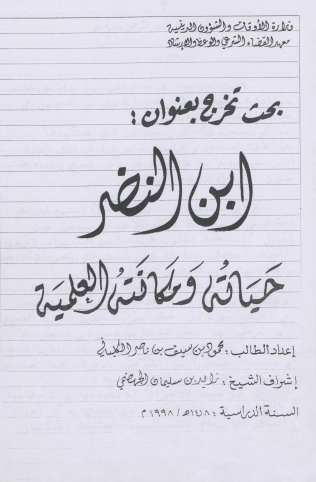 وزارة الأوقاف والشؤون الدينية
معهد القضاء الشرعي والوعظ والإرشاد
بحث تخرج بعنوان :
ابن النضر
حَيَاتُه وَمَكانَتهُ العِلميَة
إعداد الطالب : محمود بن سيف بن ناصر الكلباني
إشراف الشيخ : زايد بن سليمان الجهضمي
السنة الدراسية : ١٤١٨هـ / ١٩٩٨م